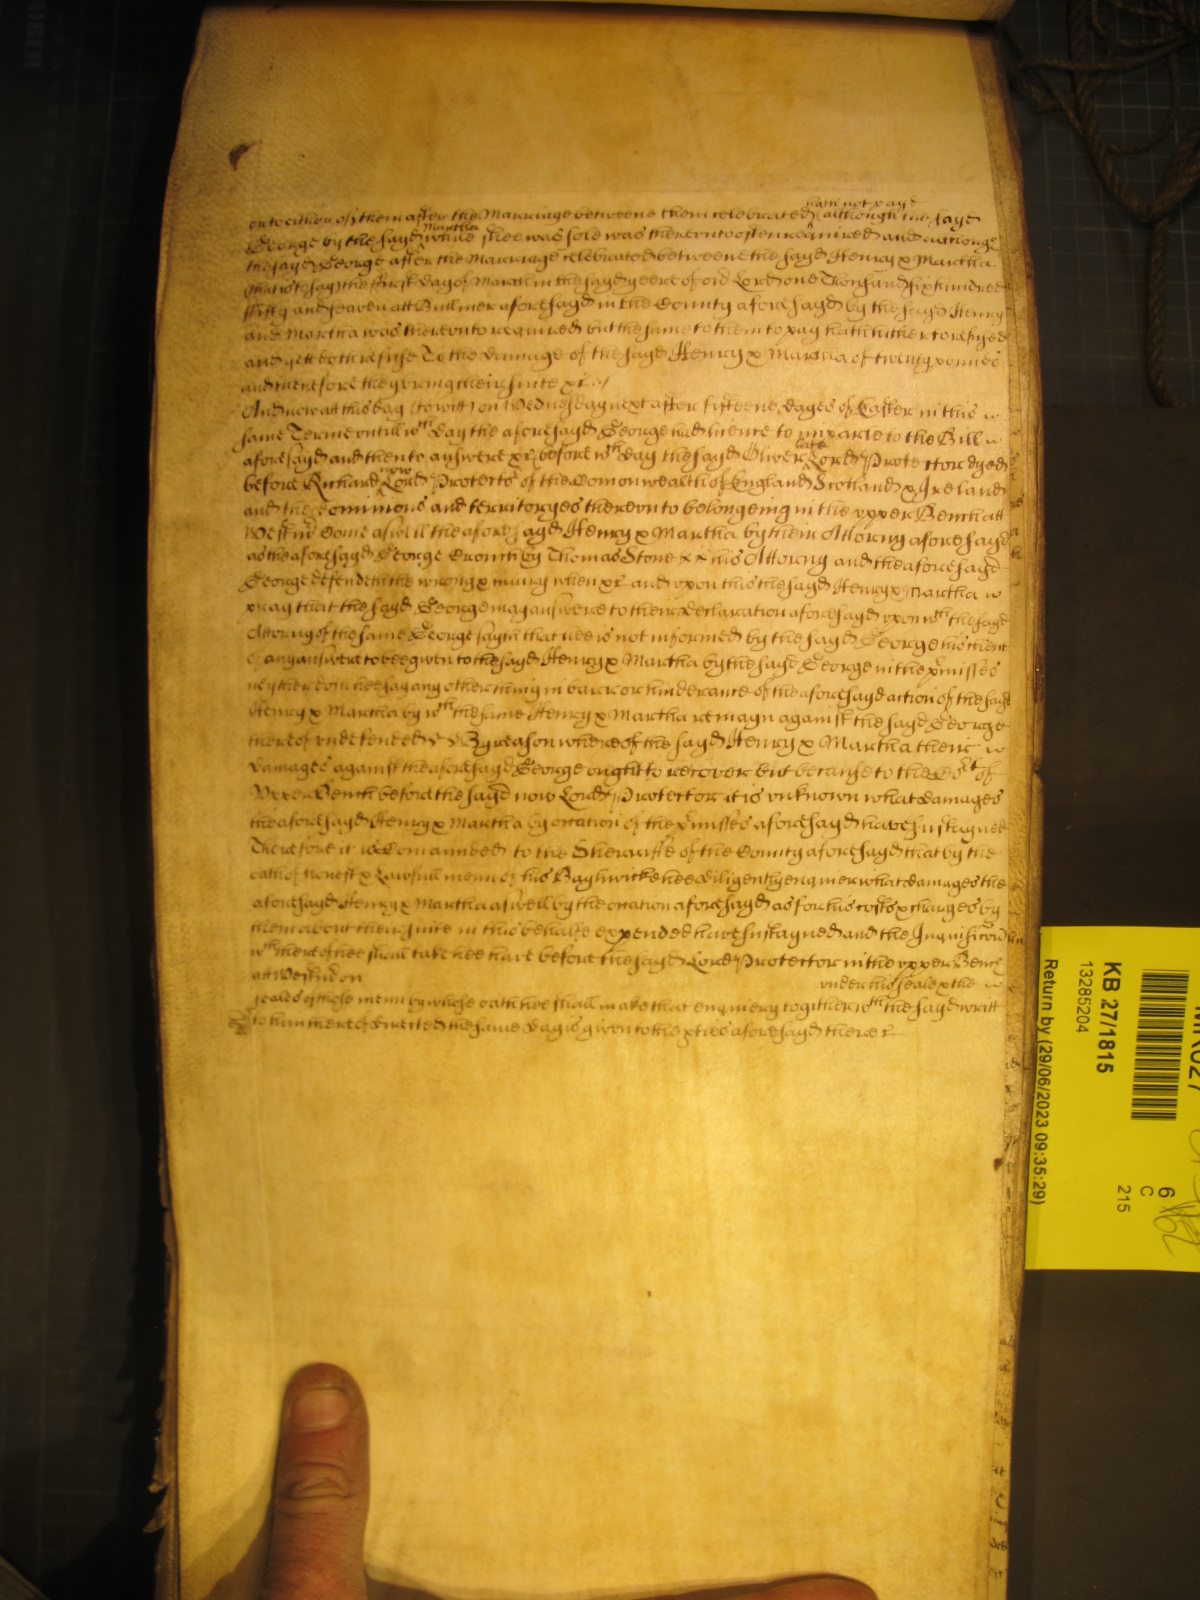 or to either of them after the Marriage betweene them celebrated hath not payd although the sayd
George by the sayd Martha while shee was sole was thereunto often required and
the sayd George after the Marriage celebrated betweene the sayd Henry & Martha
(that is to say) the first day of March in the sayd yeere of our Lord one Thousand six hundred
fifty and seaven att Bulmer aforesayd in the County aforesayd by the sayd Henry
and Martha was thereunto required but the same to them to pay hath hitherto refused
and yett doth refuse To the damage of the sayd Henry & Martha of twenty pounds
and therefore they bring their suite &c
And now att this day (to witt) on Wednesday next after fifteene dayes of Easter in this
same Terme untill wch day the aforesayd George had licence to imparle to the Bill
aforesayd and then to answere &c before wch day the sayd Oliver late Lord Protector dyed
before Richard now Lord Protector of the Comonwealth of England Scotland & Ireland
and the Dominions and territoryes thereunto belongeing in the upper Bench att
Westmr Come aswell the aforesayd Henry & Martha by their Attorny aforesayd
as the aforesayd George by Thomas Stone his Attorny and the aforesayd
George defendeth the wrong & iniury when &c and upon this the sayd Henry & Martha
pray that the sayd George may answere to their declaration aforesayd upon wch the sayd
Attorny of the same George sayth that hee is not informed by the sayd George his client
of any answere to bee given to the sayd Henry & Martha by the sayd George in the pr'misses
neyther doth hee say any other thing in barr or hinderance of the aforesayd action of the sayd
Henry & Martha by wch the same Henry & Martha remayn against the sayd George
thereof undefended By reason whereof the sayd Henry & Martha their
damages against the aforesayd George ought to recover but because to the Cort of
Upper Bench before the sayd now Lord Protector it is unknown what damages
the aforesayd Henry & Martha by occation of the pr'misses aforesayd have sustayned
Therefore it is Comaunded to the Sherriffe of the County aforesayd that by the
oath of honest & Lawfull menn of his Baylywicke hee diligently enquier what damages the
aforesayd Henry & Martha aswell by the occation aforesayd as for his costs & charges by
them about their suite in this behalfe expended have sustayned and the Inquisicon
wch thereof hee shall take hee have before the sayd Lord Protector in the upper Bench
att Westmr on under his seale & the
seales of those menn by whose oath hee shall make that enquiery together wth the sayd writt
to him thereof directed the same day is given to the pties aforesayd there &c
KB 27/1815
13285204
Return by (29/06/2023 09:35:29)
6
C
215